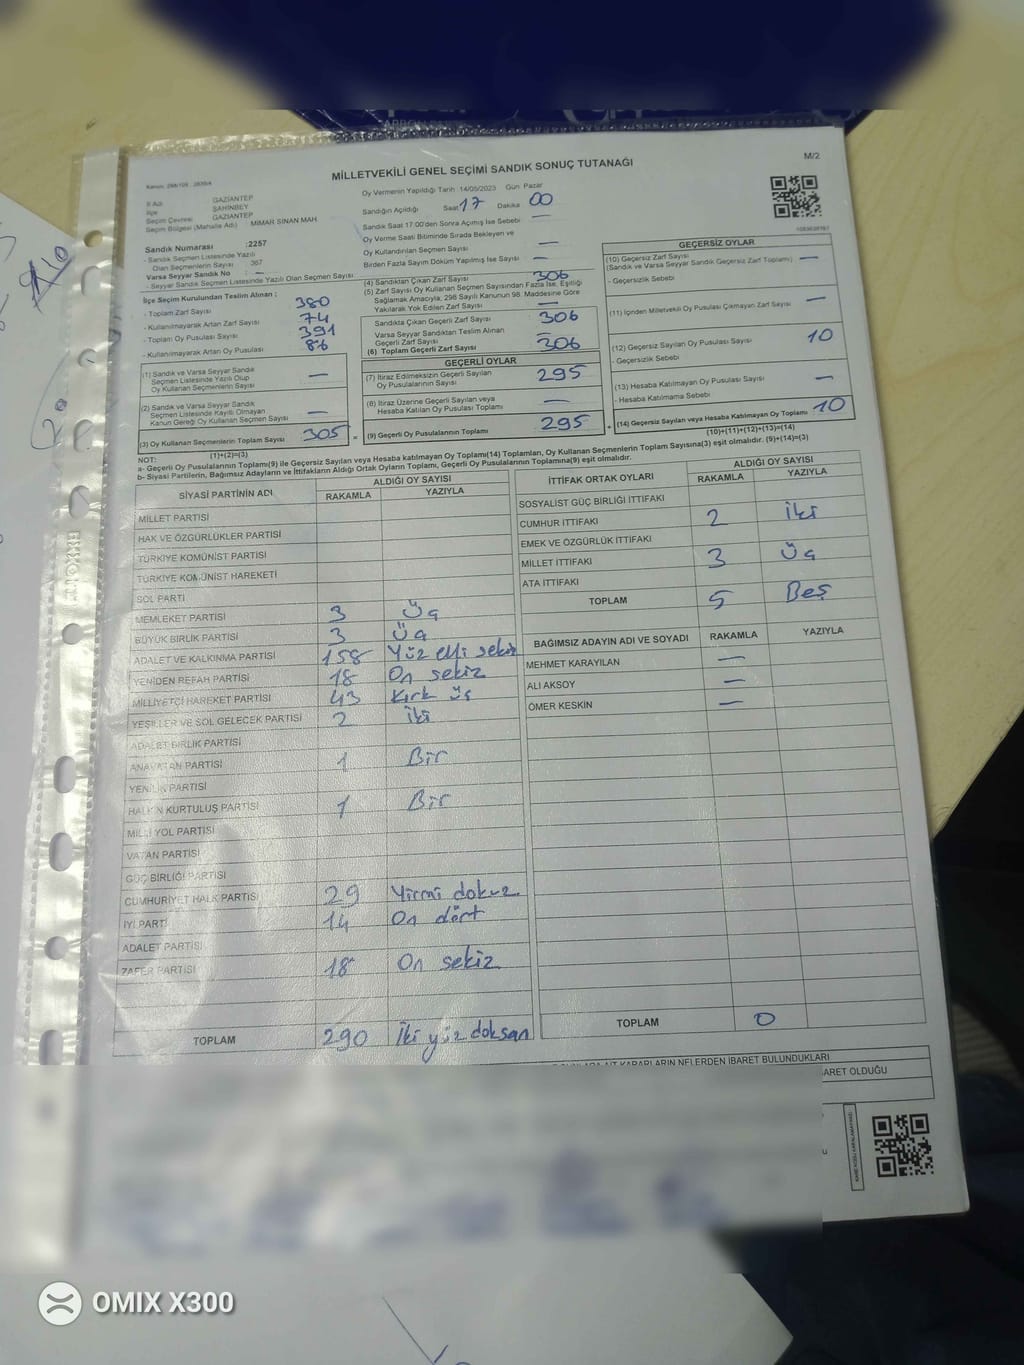 MİLLETVEKİLİ GENEL SEÇİMİ SANDIK SONUÇ TUTANAĞI
M/2
İl Adı GAZİANTEP
İlçe ŞAHİNBEY
Seçim Çevresi GAZİANTEP
Seçim Bölgesi (Mahalle Adı) : MİMAR SİNAN MAH.
Oy Vermenin Yapıldığı Tarih :14/05/2023 Gün Pazar
Sandığın Açıldığı Saat 17 Dakika 00
Sandık Saat 17:00'den Sonra Açımış İse Sebebi —
Oy Verme Saati Bitiminde Sırada Bekleyen ve
Oy Kullandırılan Seçmen Sayısı —
Birden Fazla Sayım Döküm Yapılmış İse Sayısı —
Sandık Numarası :2257
- Sandık Seçmen Listesinde Yazılı
Olan Seçmenlerin Sayısı : 367
Varsa Seyyar Sandık No : —
- Seyyar Sandık Seçmen Listesinde Yazılı Olan Seçmen Sayısı:
İlçe Seçim Kurulundan Teslim Alınan ;
- Toplam Zarf Sayısı 380
- Kullanılmayarak Artan Zarf Sayısı 74
- Toplam Oy Pusulası Sayısı 391
- Kullanılmayarak Artan Oy Pusulası 86
(1) Sandık ve Varsa Seyyar Sandık
Seçmen Listesinde Yazılı Olup
Oy Kullanan Seçmenlerin Sayısı —
(2) Sandık ve Varsa Seyyar Sandık
Seçmen Listesinde Kayıtlı Olmayan
Kanun Gereği Oy Kullanan Seçmenlerin Sayısı —
(3) Oy Kullanan Seçmenlerin Toplam Sayısı 305 =
(1)+(2)=(3)
(4) Sandıktan Çıkan Zarf Sayısı 306
(5) Zarf Sayısı Oy Kullanan Seçmen Sayısından Fazla İse, Eşitliği
Sağlamak Amacıyla; 298 Sayılı Kanunun 98. Maddesine Göre
Yakılarak Yok Edilen Zarf Sayısı —
Sandıkta Çıkan Geçerli Zarf Sayısı 306
Varsa Seyyar Sandıktan Teslim Alınan
Geçerli Zarf Sayısı —
(6) Toplam Geçerli Zarf Sayısı 306
GEÇERLİ OYLAR
(7) İtiraz Edilmeksizin Geçerli Sayılan
Oy Pusulalarının Sayısı 295
(8) İtiraz Üzerine Geçerli Sayılan veya
Hesaba Katılan Oy Pusulası Toplamı —
(9) Geçerli Oy Pusulalarının Toplamı 295 +
GEÇERSİZ OYLAR
(10) Geçersiz Zarf Sayısı
(Sandık ve Varsa Seyyar Sandık Geçersiz Zarf Toplamı) —
- Geçersizlik Sebebi
(11) İçinden Milletvekili Oy Pusulası Çıkmayan Zarf Sayısı —
(12) Geçersiz Sayılan Oy Pusulası Sayısı 10
- Geçersizlik Sebebi
(13) Hesaba Katılmayan Oy Pusulası Sayısı —
- Hesaba Katılmama Sebebi
(14) Geçersiz Sayılan veya Hesaba Katılmayan Oy Toplamı 10
(10)+(11)+(12)+(13)=(14)
NOT:
a- Geçerli Oy Pusulalarının Toplamı(9) ile Geçersiz Sayılan veya Hesaba katılmayan Oy Toplamı(14) Toplamları, Oy Kullanan Seçmenlerin Toplam Sayısına(3) eşit olmalıdır. (9)+(14)=(3)
b- Siyasi Partilerin, Bağımsız Adayların ve İttifakların Aldığı Ortak Oyların Toplamı, Geçerli Oy Pusulalarının Toplamına(9) eşit olmalıdır.
SİYASİ PARTİNİN ADI ALDIĞI OY SAYISI
RAKAMLA YAZIYLA
MİLLET PARTİSİ
HAK VE ÖZGÜRLÜKLER PARTİSİ
TÜRKİYE KOMÜNİST PARTİSİ
TÜRKİYE KOMÜNİST HAREKETİ
SOL PARTİ
MEMLEKET PARTİSİ 3 Üç
BÜYÜK BİRLİK PARTİSİ 3 Üç
ADALET VE KALKINMA PARTİSİ 158 Yüz elli sekiz
YENİDEN REFAH PARTİSİ 18 On sekiz
MİLLİYETÇİ HAREKET PARTİSİ 43 Kırk üç
YEŞİLLER VE SOL GELECEK PARTİSİ 2 İki
ADALET BİRLİK PARTİSİ
ANAVATAN PARTİSİ 1 Bir
YENİLİK PARTİSİ
HALKIN KURTULUŞ PARTİSİ 1 Bir
MİLLİ YOL PARTİSİ
VATAN PARTİSİ
GÜÇ BİRLİĞİ PARTİSİ
CUMHURİYET HALK PARTİSİ 29 Yirmi dokuz
İYİ PARTİ 14 On dört
ADALET PARTİSİ
ZAFER PARTİSİ 18 On sekiz
TOPLAM 290 İki yüz doksan
İTTİFAK ORTAK OYLARI ALDIĞI OY SAYISI
RAKAMLA YAZIYLA
SOSYALİST GÜÇ BİRLİĞİ İTTİFAKI
CUMHUR İTTİFAKI 2 İki
EMEK VE ÖZGÜRLÜK İTTİFAKI
MİLLET İTTİFAKI 3 Üç
ATA İTTİFAKI
TOPLAM 5 Beş
BAĞIMSIZ ADAYIN ADI VE SOYADI RAKAMLA YAZIYLA
MEHMET KARAYILAN —
ALİ AKSOY —
ÖMER KESKİN —
TOPLAM 0
KARARLARIN NELERDEN İBARET BULUNDUKLARI
BARET OLDUĞU
OMIX X300